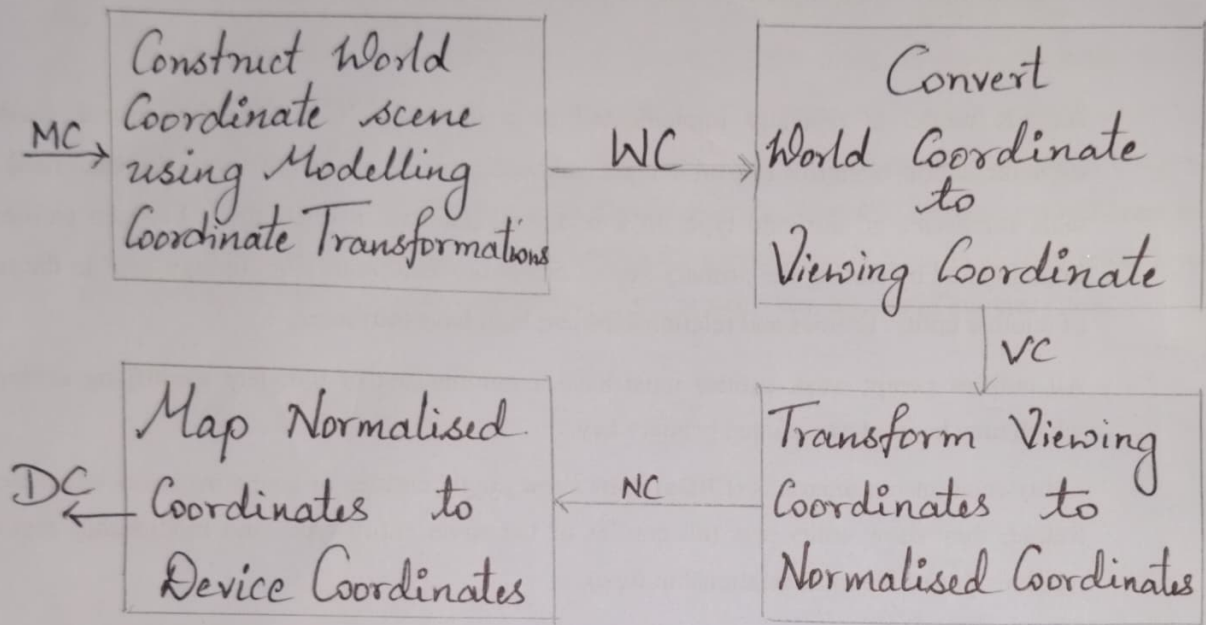 MC
Construct World
Coordinate scene
using Modelling
Coordinate Transformations
WC
Convert
World Coordinate
to
Viewing Coordinate
VC
Transform Viewing
Coordinates to
Normalised Coordinates
NC
Map Normalised
Coordinates to
Device Coordinates
DC